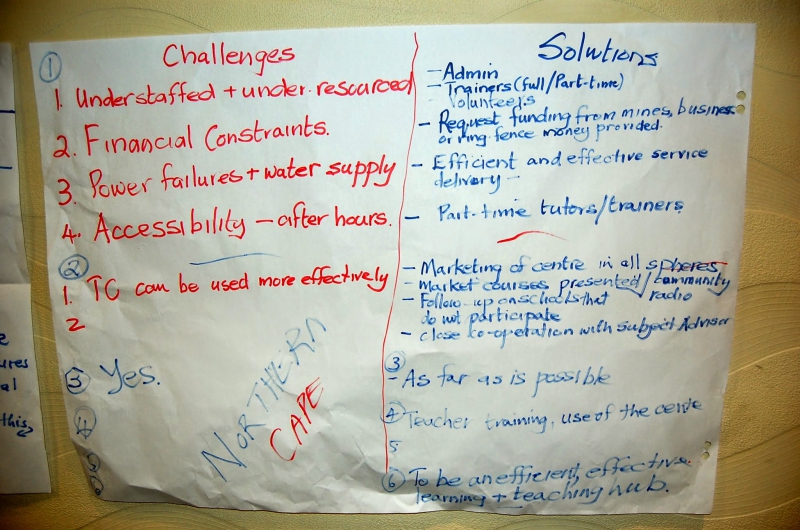 ① Challenges
1. Understaffed + under-resourced
2. Financial Constraints.
3. Power failures + water supply
4. Accessibility — after hours.
②
1. TC can be used more effectively
2
③ Yes.
④
NORTHERN
CAPE
Solutions
- Admin
- Trainers (full/Part-time)
Volunteers
- Request funding from mines, business
or ring fence money provided.
- Efficient and effective service
delivery -
- Part-time tutors/trainers
- Marketing of centre in all spheres
- Market courses presented/community
radio
- Follow-up on schools that
do not participate
- close co-operation with subject Advisor
③
- As far as is possible
④ Teacher training, use of the centre
5
⑥ To be an efficient, effective
learning + teaching hub.
ures
al
this